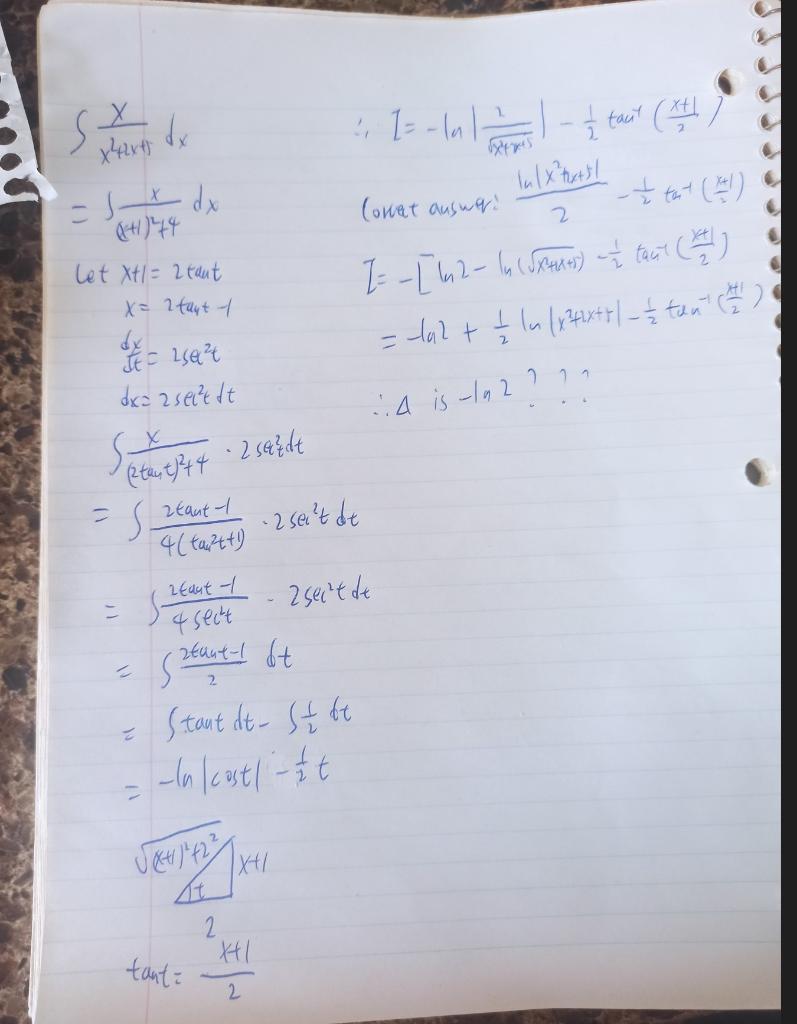 ∫ x/(x²+2x+5) dx
= ∫ x/((x+1)²+4) dx
Let x+1 = 2tant
x = 2tant -1
dx/dt = 2sec²t
dx = 2sec²t dt
∫ x/((2tant)²+4) · 2sec²t dt
= ∫ (2tant-1)/(4(tan²t+1)) · 2sec²t dt
= ∫ (2tant-1)/(4sec²t) · 2sec²t dt
= ∫ (2tant-1)/2 dt
= ∫tant dt - ∫ 1/2 dt
= -ln|cost| - 1/2 t
√((x+1)²+2²)
x+1
t
2
tant = (x+1)/2
∴ I = -ln|2/√(x²+2x+5)| - 1/2 tan⁻¹((x+1)/2)
Correct answer: ln|x²+2x+5|/2 - 1/2 tan⁻¹((x+1)/2)
I = -[ln2 - ln(√(x²+2x+5)) - 1/2 tan⁻¹((x+1)/2)
= -ln2 + 1/2 ln|x²+2x+5| - 1/2 tan⁻¹((x+1)/2)
∴ Δ is -ln2 ? ? ?